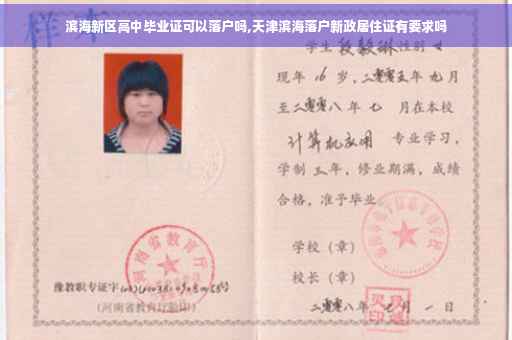 滨海新区高中毕业证可以落户吗,天津滨海落户新政居住证有要求吗
样本
学生 性别 女
现年 16 岁，二零零五年 九月
至二零零八年 七 月在本校
计算机应用 专业学习，
学制 三年，修业期满，成绩
合格，准予毕业。
学校（章）
校长（章）
二零零八年 七 月 一 日
河南省教育厅
豫教职专证字
（河南省教育厅验印）